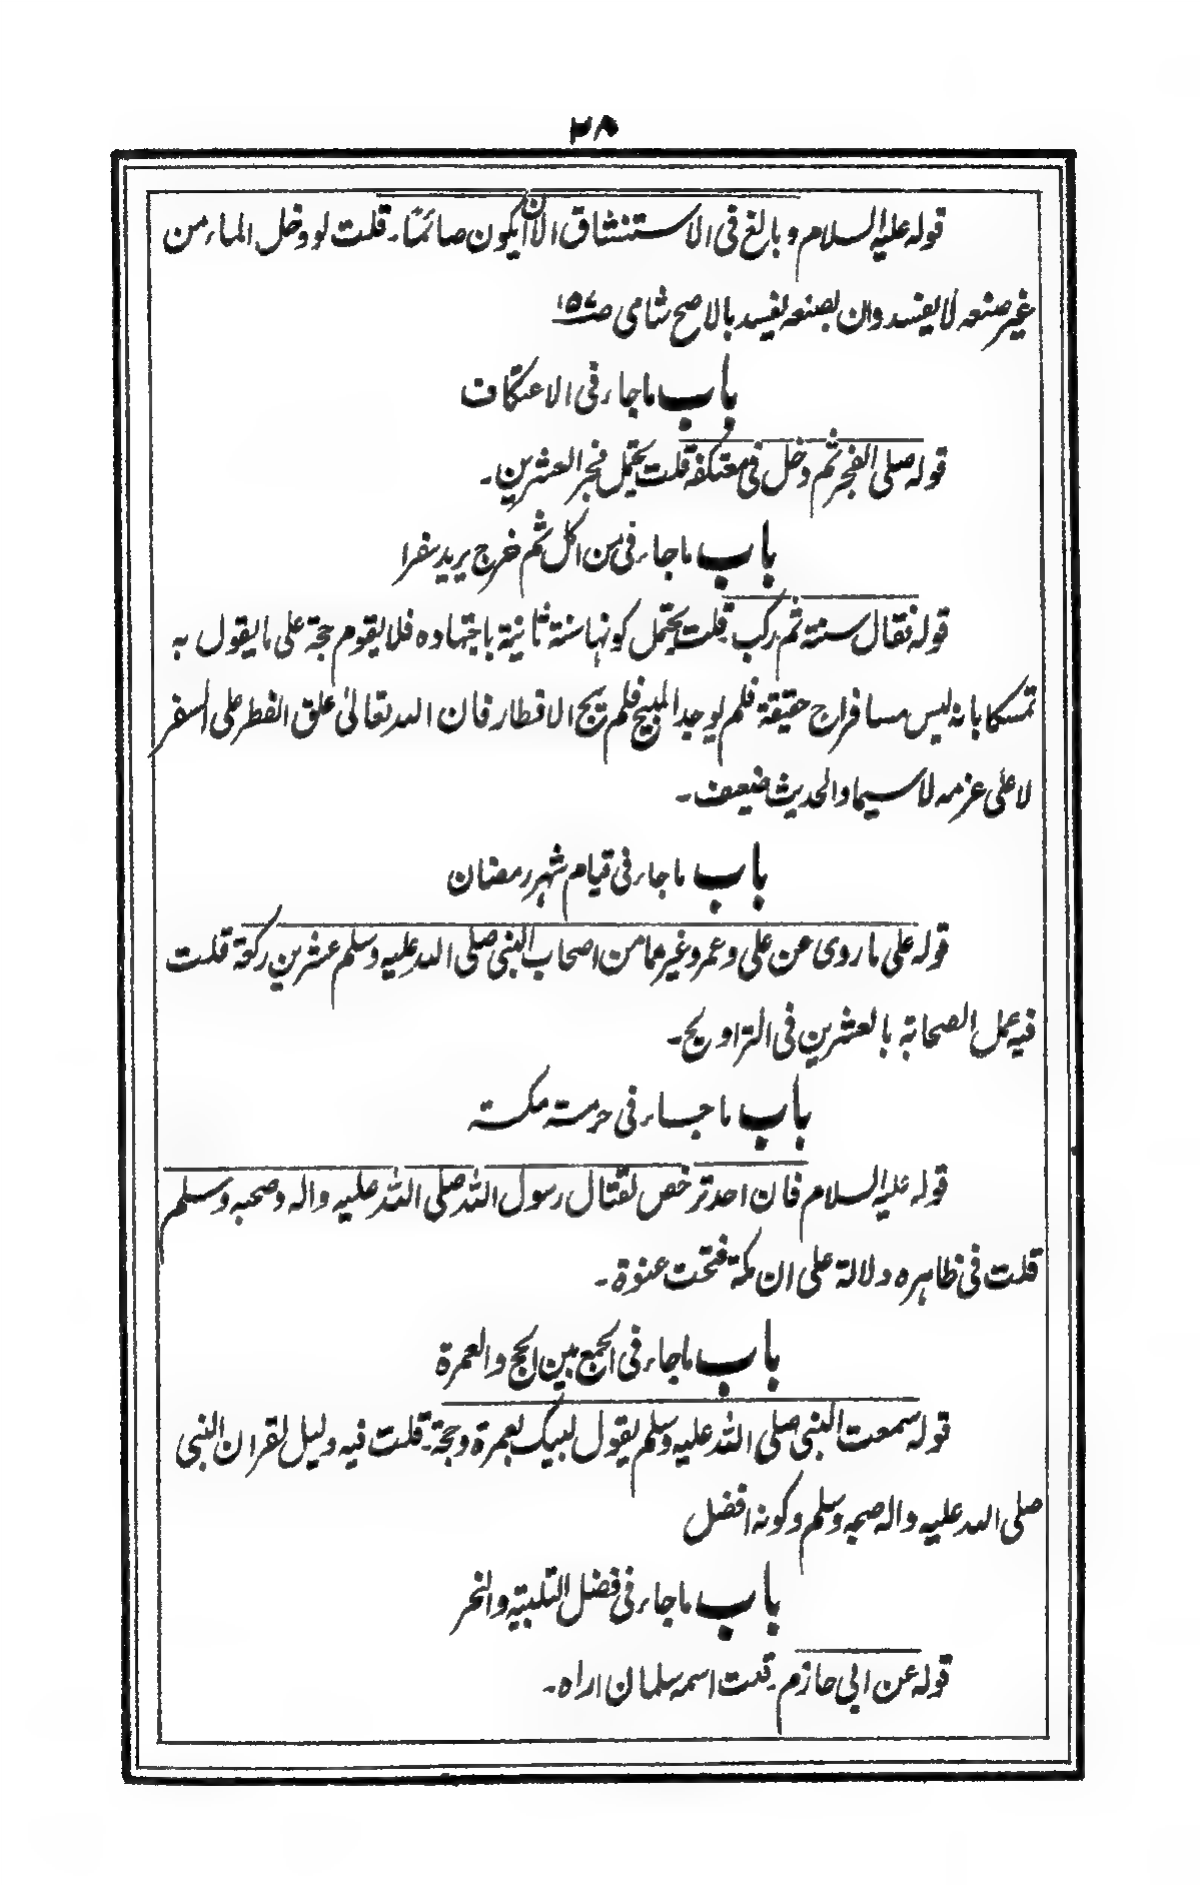 ٢٨
قوله عليه السلام وبالغ فى الاستنشاق الا ان يكون صائمًا۔ قلت لو دخل الماء من
غير صنعه لا يفسد وان بصنعه يفسد بالاصح شامى صـ١٥٧
باب ماجاء فى الاعتكاف
قوله صلى الفجر ثم دخل فى معتكفه قلت يحتمل فجر العشرين۔
باب ماجاء فى من اكل ثم خرج يريد سفرا
قوله فقال سنة ثم ركب۔ قلت يحتمل كونها سنة ثانية باجتهاده فلا يقوم حجة على ما يقول به
تمسكا بانه ليس مسافراج حقيقة فلم يوجد المبيح فلم يبح الافطار فان الله تعالىٰ علق الفطر على السفر
لا على عزمه لاسيما والحديث ضيعف۔
باب ماجاء فى قيام شهر رمضان
قوله على ما روى عن على وعمر وغيرهما من اصحاب النبى صلى الله عليه وسلم عشرين ركعة قلت
فيه عمل الصحابة بالعشرين فى التراويح۔
باب ماجاء فى حرمة مكة
قوله عليه السلام فان احد ترخص لقتال رسول الله صلى الله عليه واله وصحبه وسلم
قلت فى ظاهره دلالة على ان مكة فتحت عنوة۔
باب ماجاء فى الجمع بين الحج والعمرة
قوله سمعت النبى صلى الله عليه وسلم يقول لبيك بعمرة وحجة۔ قلت فيه دليل لقران النبى
صلى الله عليه واله صحبه وسلم وكونه افضل
باب ماجاء فى فضل التلبية والنحر
قوله عن ابى حازم۔ قلت اسمه سلمان اراه۔